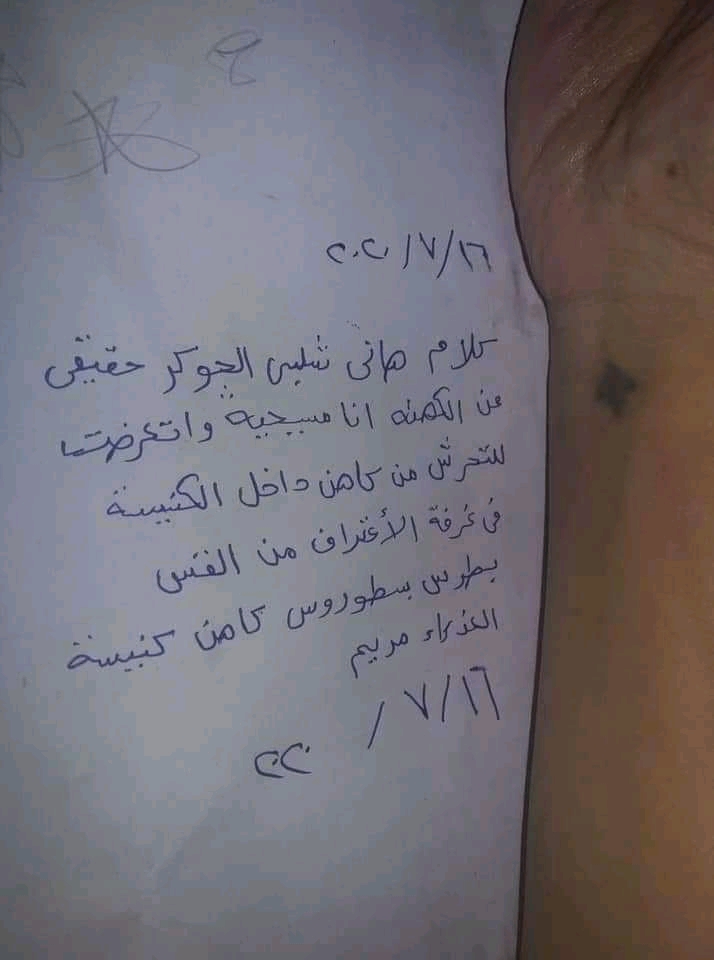 ٢٠٢٠/٧/١٦
كلام هانى شلبى الجوكر حقيقى
عن الكهنه انا مسيحية واتعرضت
للتحرش من كاهن داخل الكنيسة
فى غرفة الأعتراف من القس
بطرس بسطوروس كاهن كنيسة
العذراء مريم
٢٠٢٠/٧/١٦